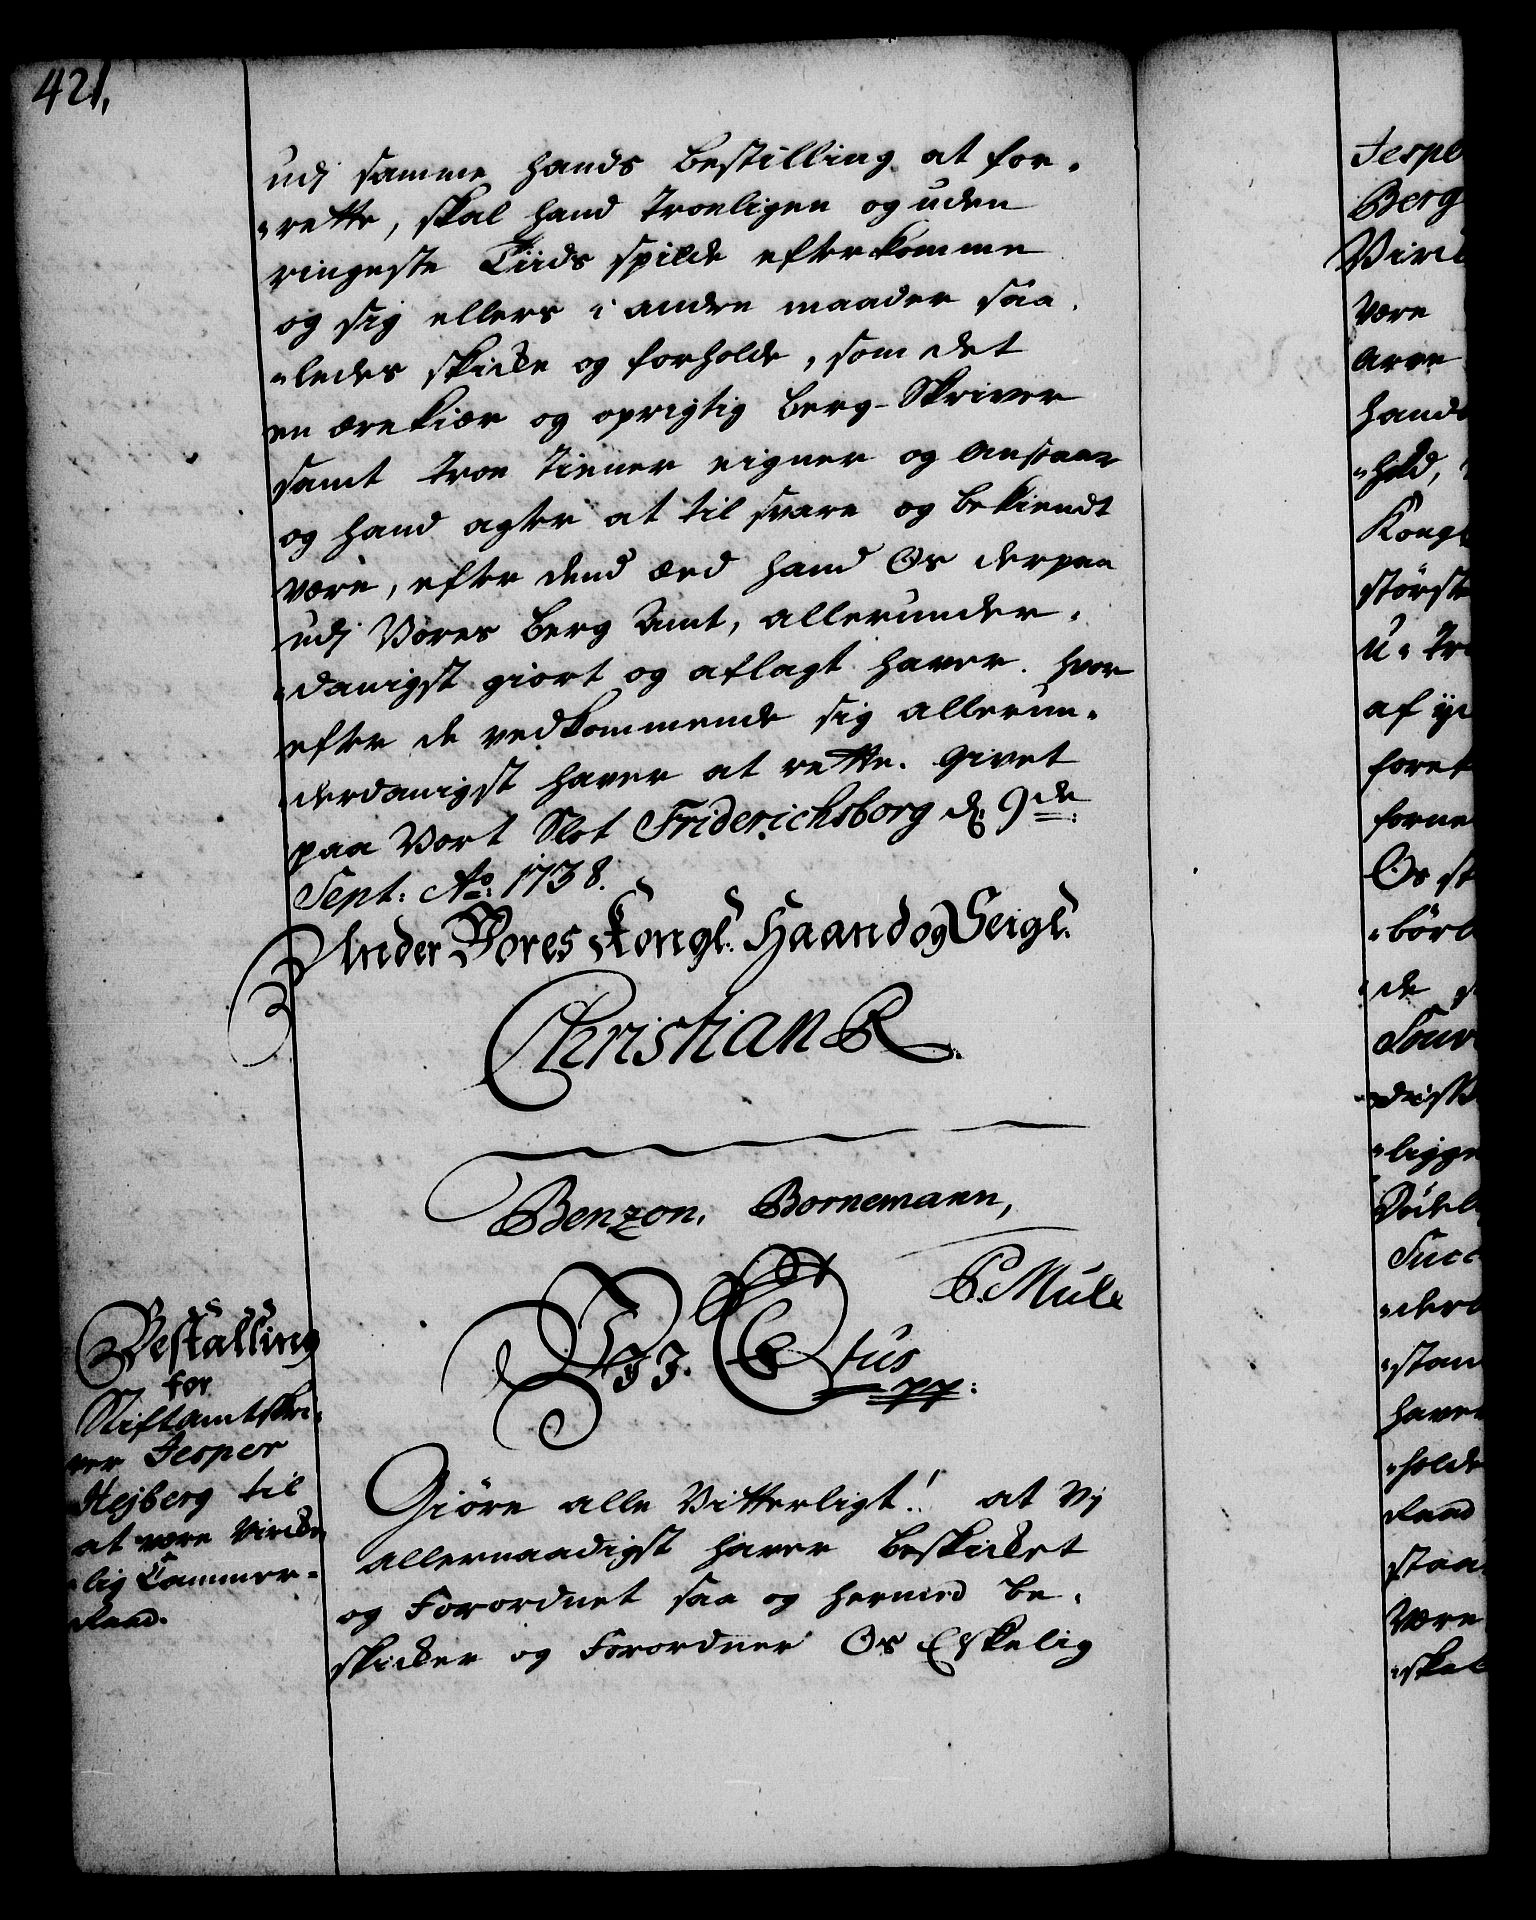 421.
udj samme hands bestilling at for-
-rette, skal hand troeligen og uden
ringeste Tiids spilde efterkomme
og sig ellers i andre maader saa-
-ledes skicke og forholde, som det
en ærekiær og oprigtig Berg-Skriver
samt troe tiener eigner og anstaar
og hand agter at til svare og bekiendt
være, efter dend æed hand Os derpaa
udj Vores Berg Amt, allerunder-
-danigst giort og aflagt haver. hvor
efter de vedkommende sig allerun-
-derdanigst haver at rette. Givet
paa Vort Slot Friderichsborg d. 9de
Sept: Ao: 1738.
Under Vores Kongl. Haand og Seigl.
Christian R.
Benzon. Bornemann,
P. Mule
Bestalling
for
Stiftamtskri-
ver Jesper
Hejberg til
at være virke-
-lig Cammer-
Raad.
Vj. C. 6tus
pp:
Giöre alle Vitterligt! at Vj
allernaadigst haver beskicket
og Forordnet saa og hermed be-
skicker og Forordner Os Elskelig
Jespe
Berg
Virk
være
arve
hands
-hold,
Kongl
störst
u-tr
af y
foret
forne
Os st
-börl
de
Souv
-disk
-ligge
Dödel
Succ
-derd
-stan
haver
-holde
Raad
staa
være
-skal